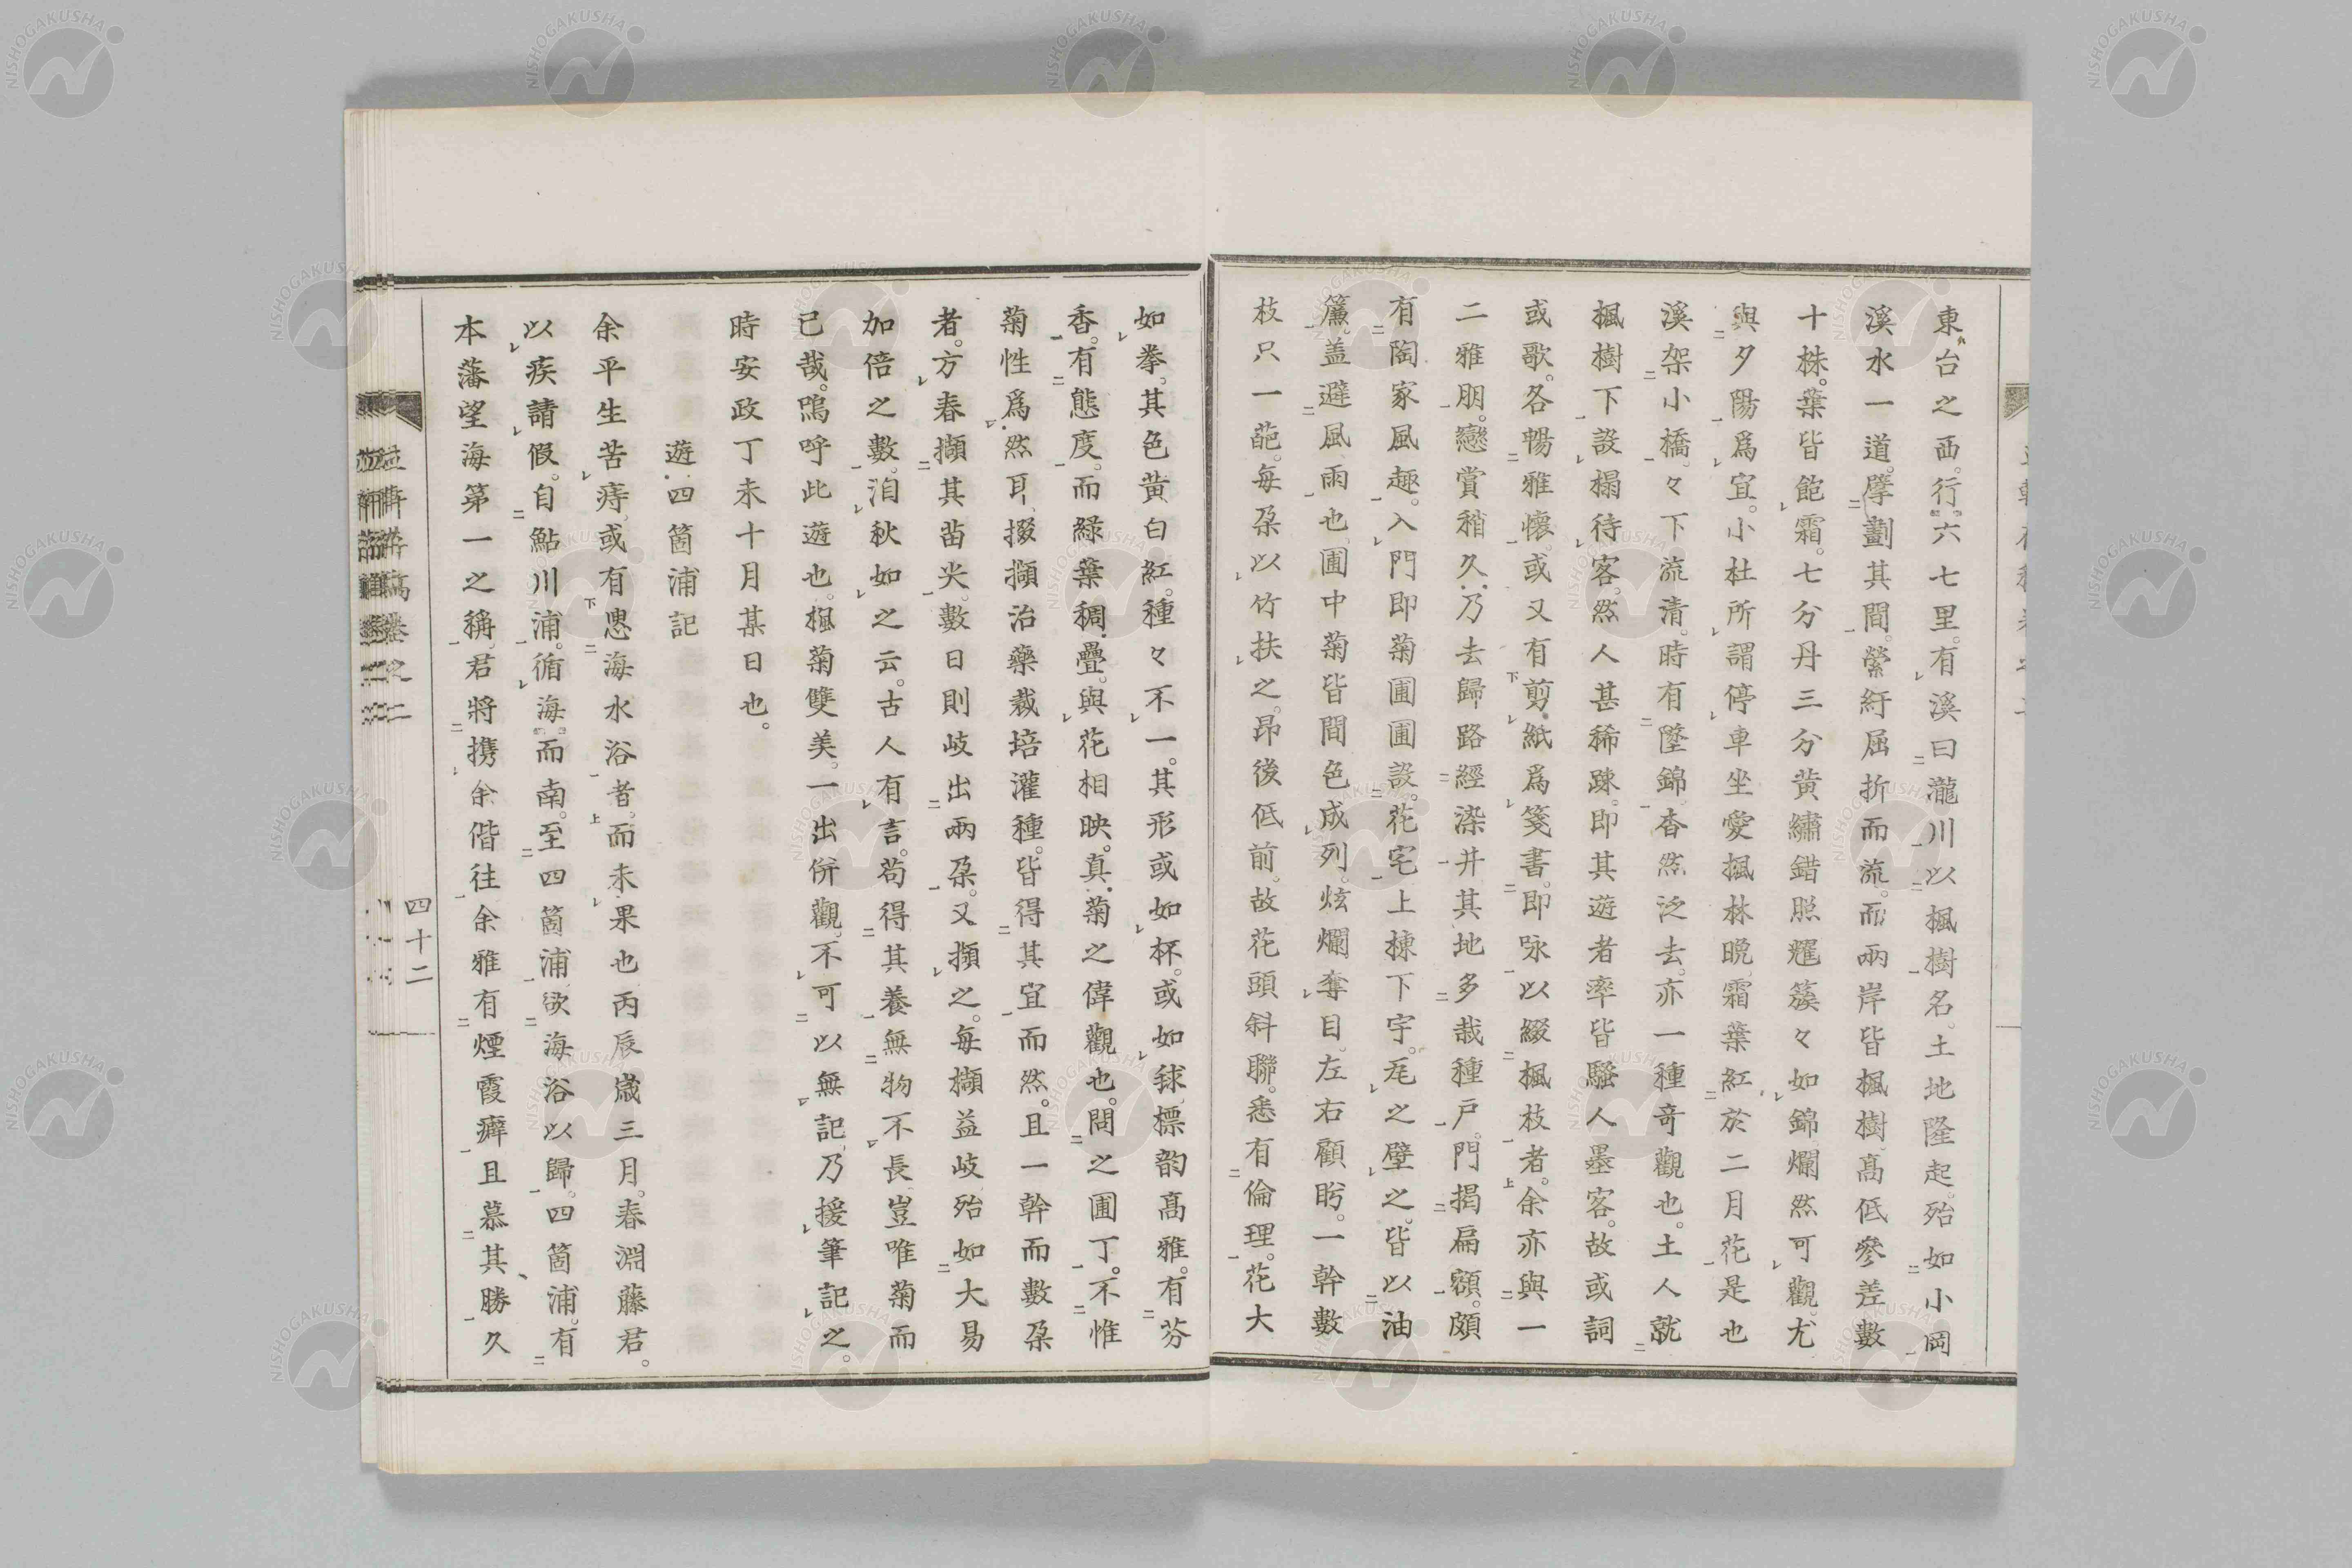 東台之西。行六七里。有溪曰瀧川以楓樹名。土地隆起。殆如小岡
溪水一道。擘劃其間。縈紆屈折而流。而兩岸皆楓樹。高低參差數
十株。葉皆飽霜。七分丹三分黃繡錯照耀簇々如錦爛然可觀。尤
與夕陽爲宜。小杜所謂停車坐愛楓林晩、霜葉紅於二月花是也
溪架小橋。々下流清。時有墜錦。杳然泛去。亦一種奇觀也。土人就
楓樹下設榻待客。然人甚稀踈。即其遊者率皆騷人墨客。故或詞
或歌。各暢雅懷。或又有剪紙爲箋書。即咏以綴楓枝者。余亦與一
二雅朋。戀賞稍久。乃去歸路經染井其地多栽種戶。門揭扁額。頗
有陶家風趣。入門即菊圃圃設。花宅上棟下宇。无之壁之。皆以油
簾盖避風雨也。圃中菊皆間色成列。炫爛奪目。左右顧眄。一幹數
枝只一葩。每朶以竹扶之。昂後低前。故花頭斜聯。悉有倫理。花大
如拳。其色黃白紅。種々不一。其形或如杯。或如毬、標韵高雅。有芬
香。有態度。而綠葉稠疊。與花相映。真菊之偉觀也。問之圃丁。不惟
菊性爲然耳、掇擷治藥栽培灌種。皆得其宜而然。且一幹而數朶
者。方春擷其苗尖。數日則岐出兩朶。又擷之。每擷益岐殆如大易
加倍之數。洎秋如之云。古人有言。苟得其養無物不長豈唯菊而
已哉。嗚呼此遊也。楓菊雙美。一出併觀。不可以無記、乃援筆記之。
時安政丁未十月某日也。
遊四箇浦記
余平生苦痔。或有慂海水浴者。而未果也丙辰歲三月。春淵藤君。
以疾請假。自鮎川浦。循海而南。至四箇浦欲海浴以歸。四箇浦。有
本藩望海第一之稱。君將携余偕往余雅有煙霞癖且慕其勝久
四十二